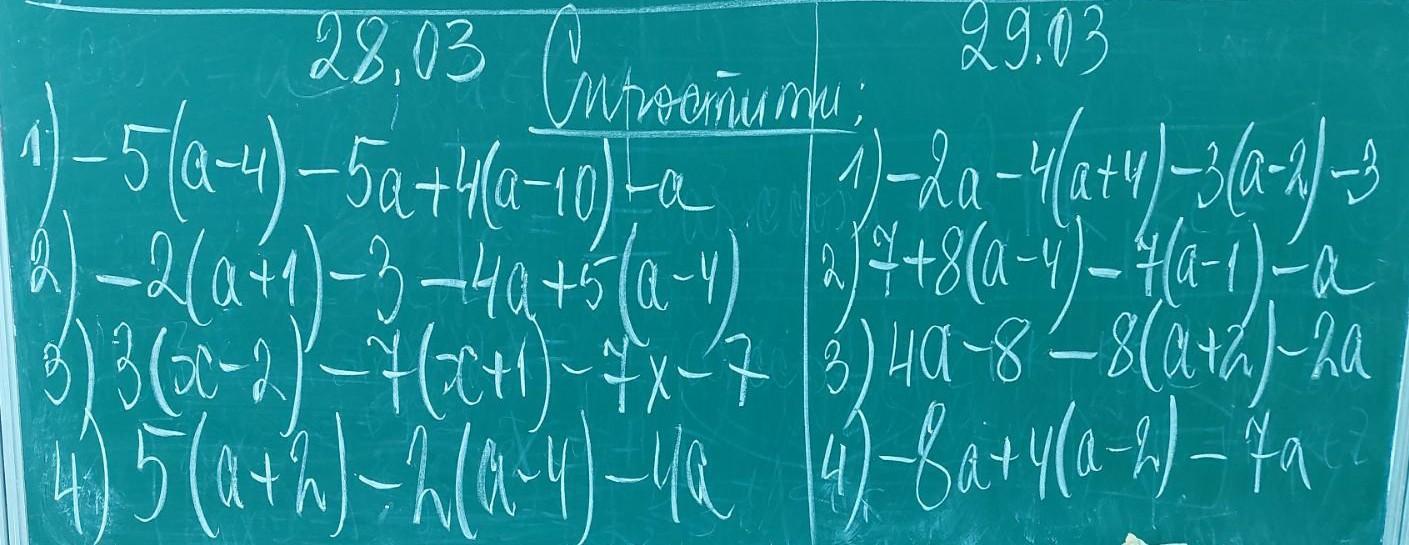 28.03
29.03
Спростити:
1) -5(a-4)-5a+4(a-10)-a
2) -2(a+1)-3-4a+5(a-4)
3) 3(x-2)-7(x+1)-7x-7
4) 5(a+2)-2(a-4)-4a
1) -2a-4(a+4)-3(a-2)-3
2) 7+8(a-4)-7(a-1)-a
3) 4a-8-8(a+2)-2a
4) -8a+4(a-2)-7a